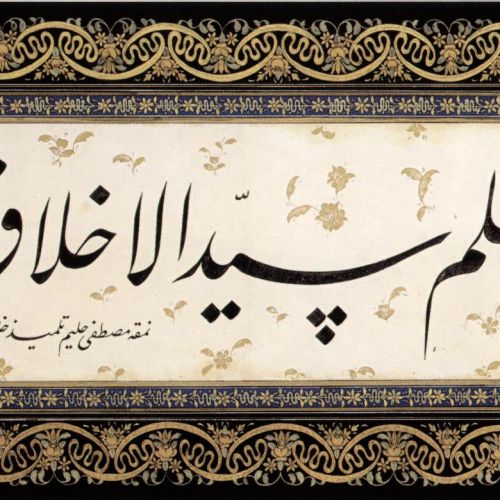 لم سيّد الاخلاق
نمقه مصطفى حليم تلميذ